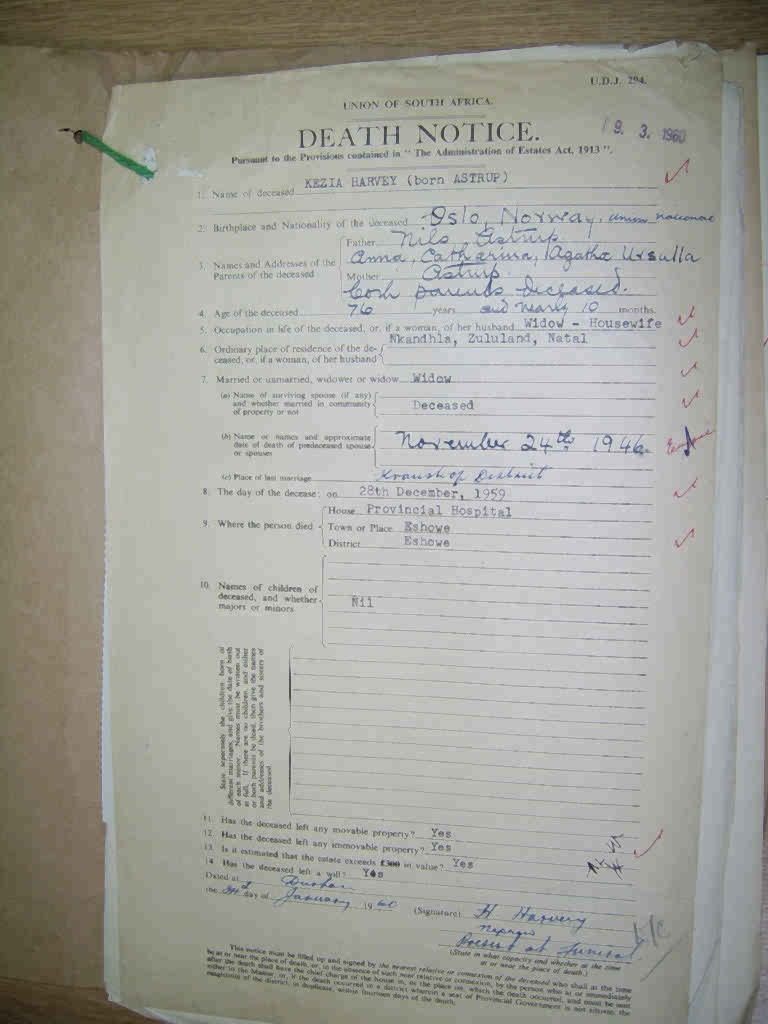 U.D.J. 294.
UNION OF SOUTH AFRICA.
DEATH NOTICE.
9. 3. 1960
Pursuant to the Provisions contained in "The Administration of Estates Act, 1913".
1. Name of deceased KEZIA HARVEY (born ASTRUP)
2. Birthplace and Nationality of the deceased Oslo, Norway, Union National
3. Names and Addresses of the Parents of the deceased
Father Nils Astrup
Anna, Catharina, Agatha Ursulla
Mother Astrup.
both parents deceased.
4. Age of the deceased 76 years and nearly 10 months.
5. Occupation in life of the deceased, or, if a woman, of her husband Widow - Housewife
6. Ordinary place of residence of the de-
ceased, or, if a woman, of her husband
Nkandhla, Zululand, Natal
7. Married or unmarried, widower or widow Widow
(a) Name of surviving spouse (if any)
and whether married in community
of property or not
Deceased
(b) Name or names and approximate
date of death of predeceased spouse
or spouses
November 24th 1946
(c) Place of last marriage Kranskop District
8. The day of the decease: on 28th December, 1959
9. Where the person died
House Provincial Hospital
Town or Place Eshowe
District Eshowe
10. Names of children of
deceased, and whether
majors or minors
Nil
State separately the children born of
different marriages, and give the date of birth
of each minor. Names must be written out
in full. If there are no children, and either
or both parents be dead, then give the names
and addresses of the brothers and sisters of
the deceased
11. Has the deceased left any movable property? Yes
12. Has the deceased left any immovable property? Yes
13. Is it estimated that the estate exceeds £300 in value? Yes
14. Has the deceased left a will? Yes
Dated at Durban
the day of January 1960
(Signature) H Harvey
Nephew
Present at Funeral
(State in what capacity and whether at the time
at or near the place of death.)
This notice must be filled up and signed by the nearest relative or connexion of the deceased who shall at the time
be at or near the place of death, or, in the absence of such near relative or connexion, by the person who at or immediately
after the death shall have the chief charge of the house in, or the place on, which the death occurred, and must be sent
either to the Master, or, if the death occurred in a district wherein a seat of Provincial Government is not situate, the
magistrate of the district, in duplicate, within fourteen days of the death.